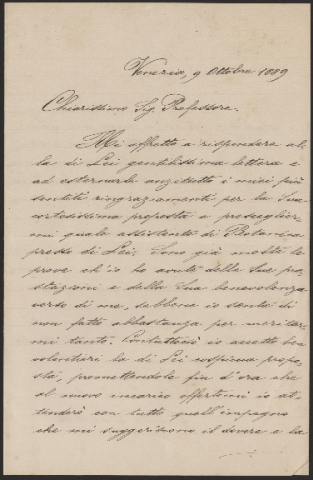 Venezia, 9 Ottobre 1889
Chiarissimo Sig. Professore.
Mi affretto a rispondere al-
la di Lei gentilissima lettera e
ad esternarle anzitutto i miei più
sentiti ringraziamenti per la Sua
cortesissima proposta a prescegliere
mi quale assistente di Botanica
presso di Lei. Sono già molte le
prove ch'io ho avute della Sua
e della Sua benevolenza
verso di me, sebbene io senta di
non fatto abbastanza per meritar-
mi tanto. Contuttociò io accetto ben
volentieri la di Lei cospicua propo-
sta, promettendole fin d'ora che
al nuovo incarico offertomi io at-
tenderò con tutto quell'impegno
che mi suggeriscono il dovere e la